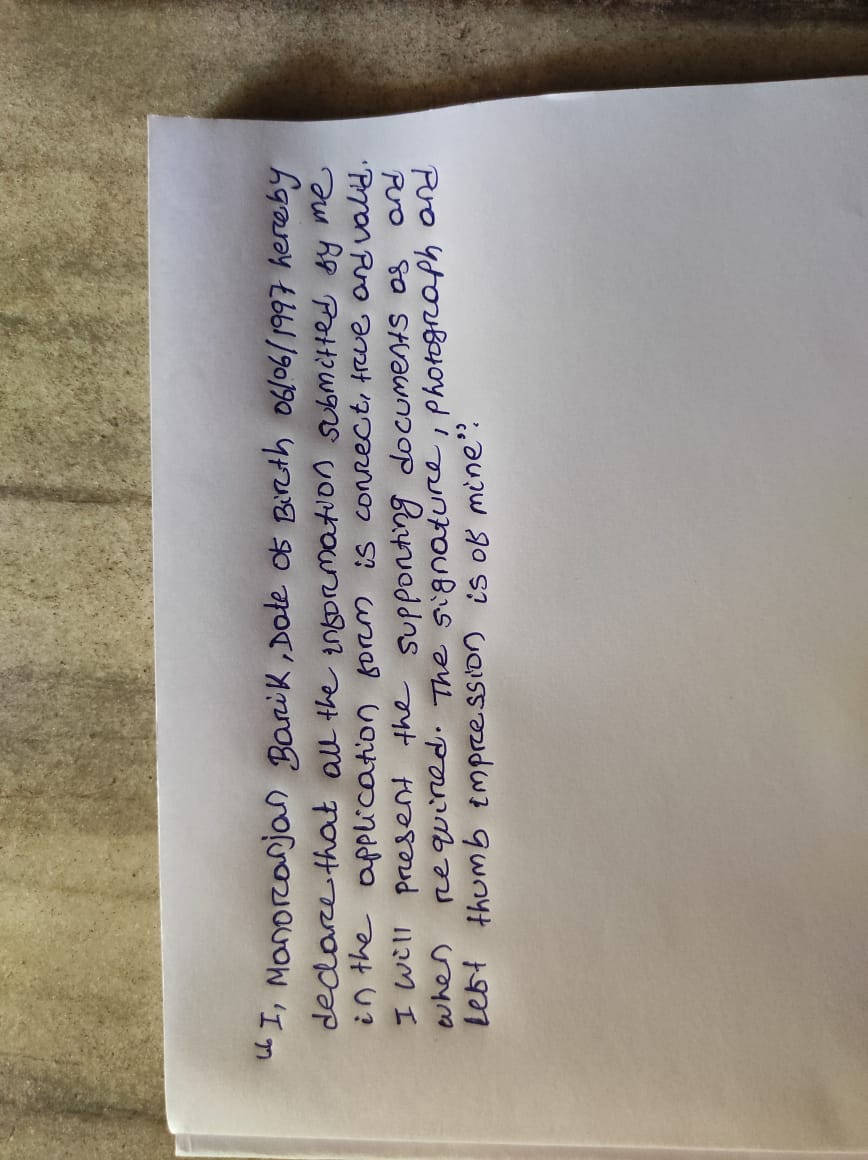 “I, Manoranjan Barik, Date of Birth 06/06/1997 hereby
declare that all the information submitted by me
in the application form is correct, true and valid.
I will present the supporting documents as and
when required. The signature, photograph and
left thumb impression is of mine”.